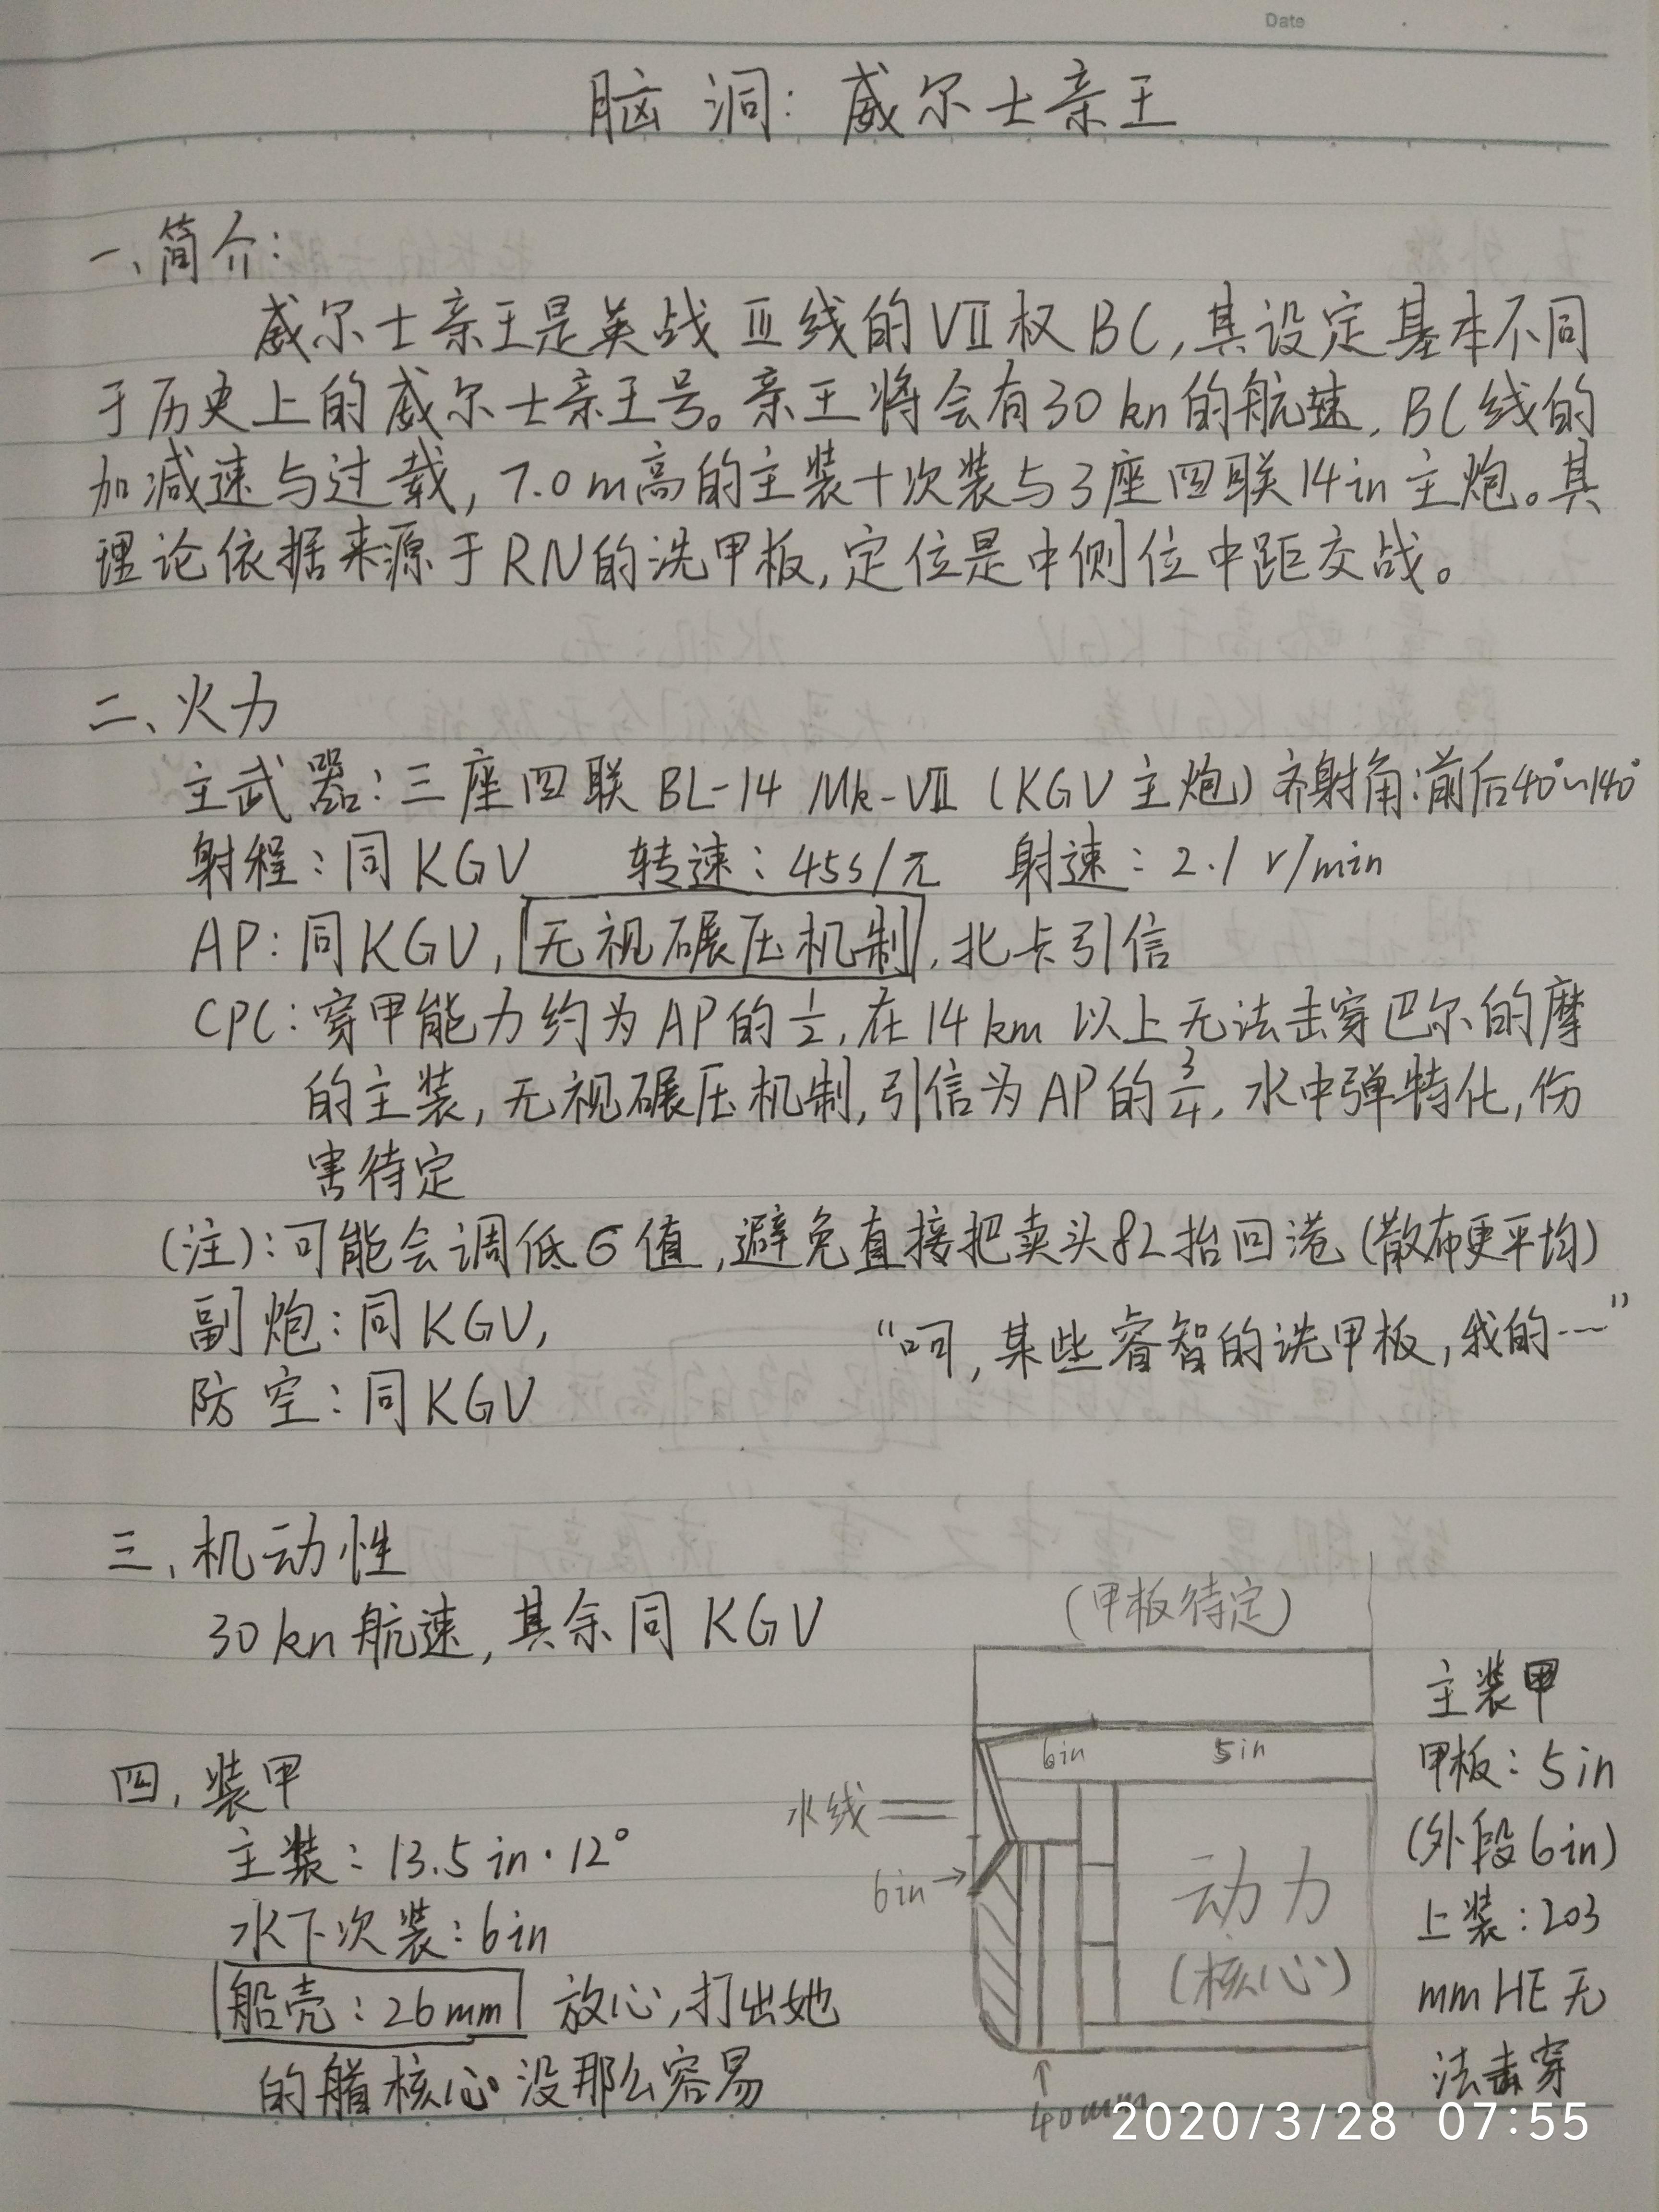 Date
脑洞：威尔士亲王
一、简介：
威尔士亲王是英战Ⅲ线的VII权BC,其设定基本不同
于历史上的威尔士亲王号。亲王将会有30kn的航速,BC线的
加减速与过载,7.0m高的主装+次装与3座四联14in主炮。其
理论依据来源于RN的洗甲板,定位是中侧位中距交战。
二、火力
主武器：三座四联BL-14 Mk-VII(KGV主炮)齐射角:前后40°~140°
射程：同KGV 转速：45s/π 射速：2.1 r/min
AP：同KGV,无视碾压机制,北卡引信
CPC：穿甲能力约为AP的1/2,在14km以上无法击穿巴尔的摩
的主装,无视碾压机制,引信为AP的3/4,水中弹特化,伤
害待定
(注)：可能会调低σ值,避免直接把卖头82抬回港(散布更平均)
副炮：同KGV,
“呵,某些睿智的洗甲板,我的…”
防空：同KGV
三、机动性
30kn航速,其余同KGV
四、装甲
主装：13.5in·12°
水下次装：6in
船壳：26mm 放心,打出她
的艏核心没那么容易
(甲板待定)
6in 5in
水线
6in
动力
(核心)
40mm
主装甲
甲板：5in
(外段6in)
上装：203
mmHE无
法击穿
2020/3/28 07:55